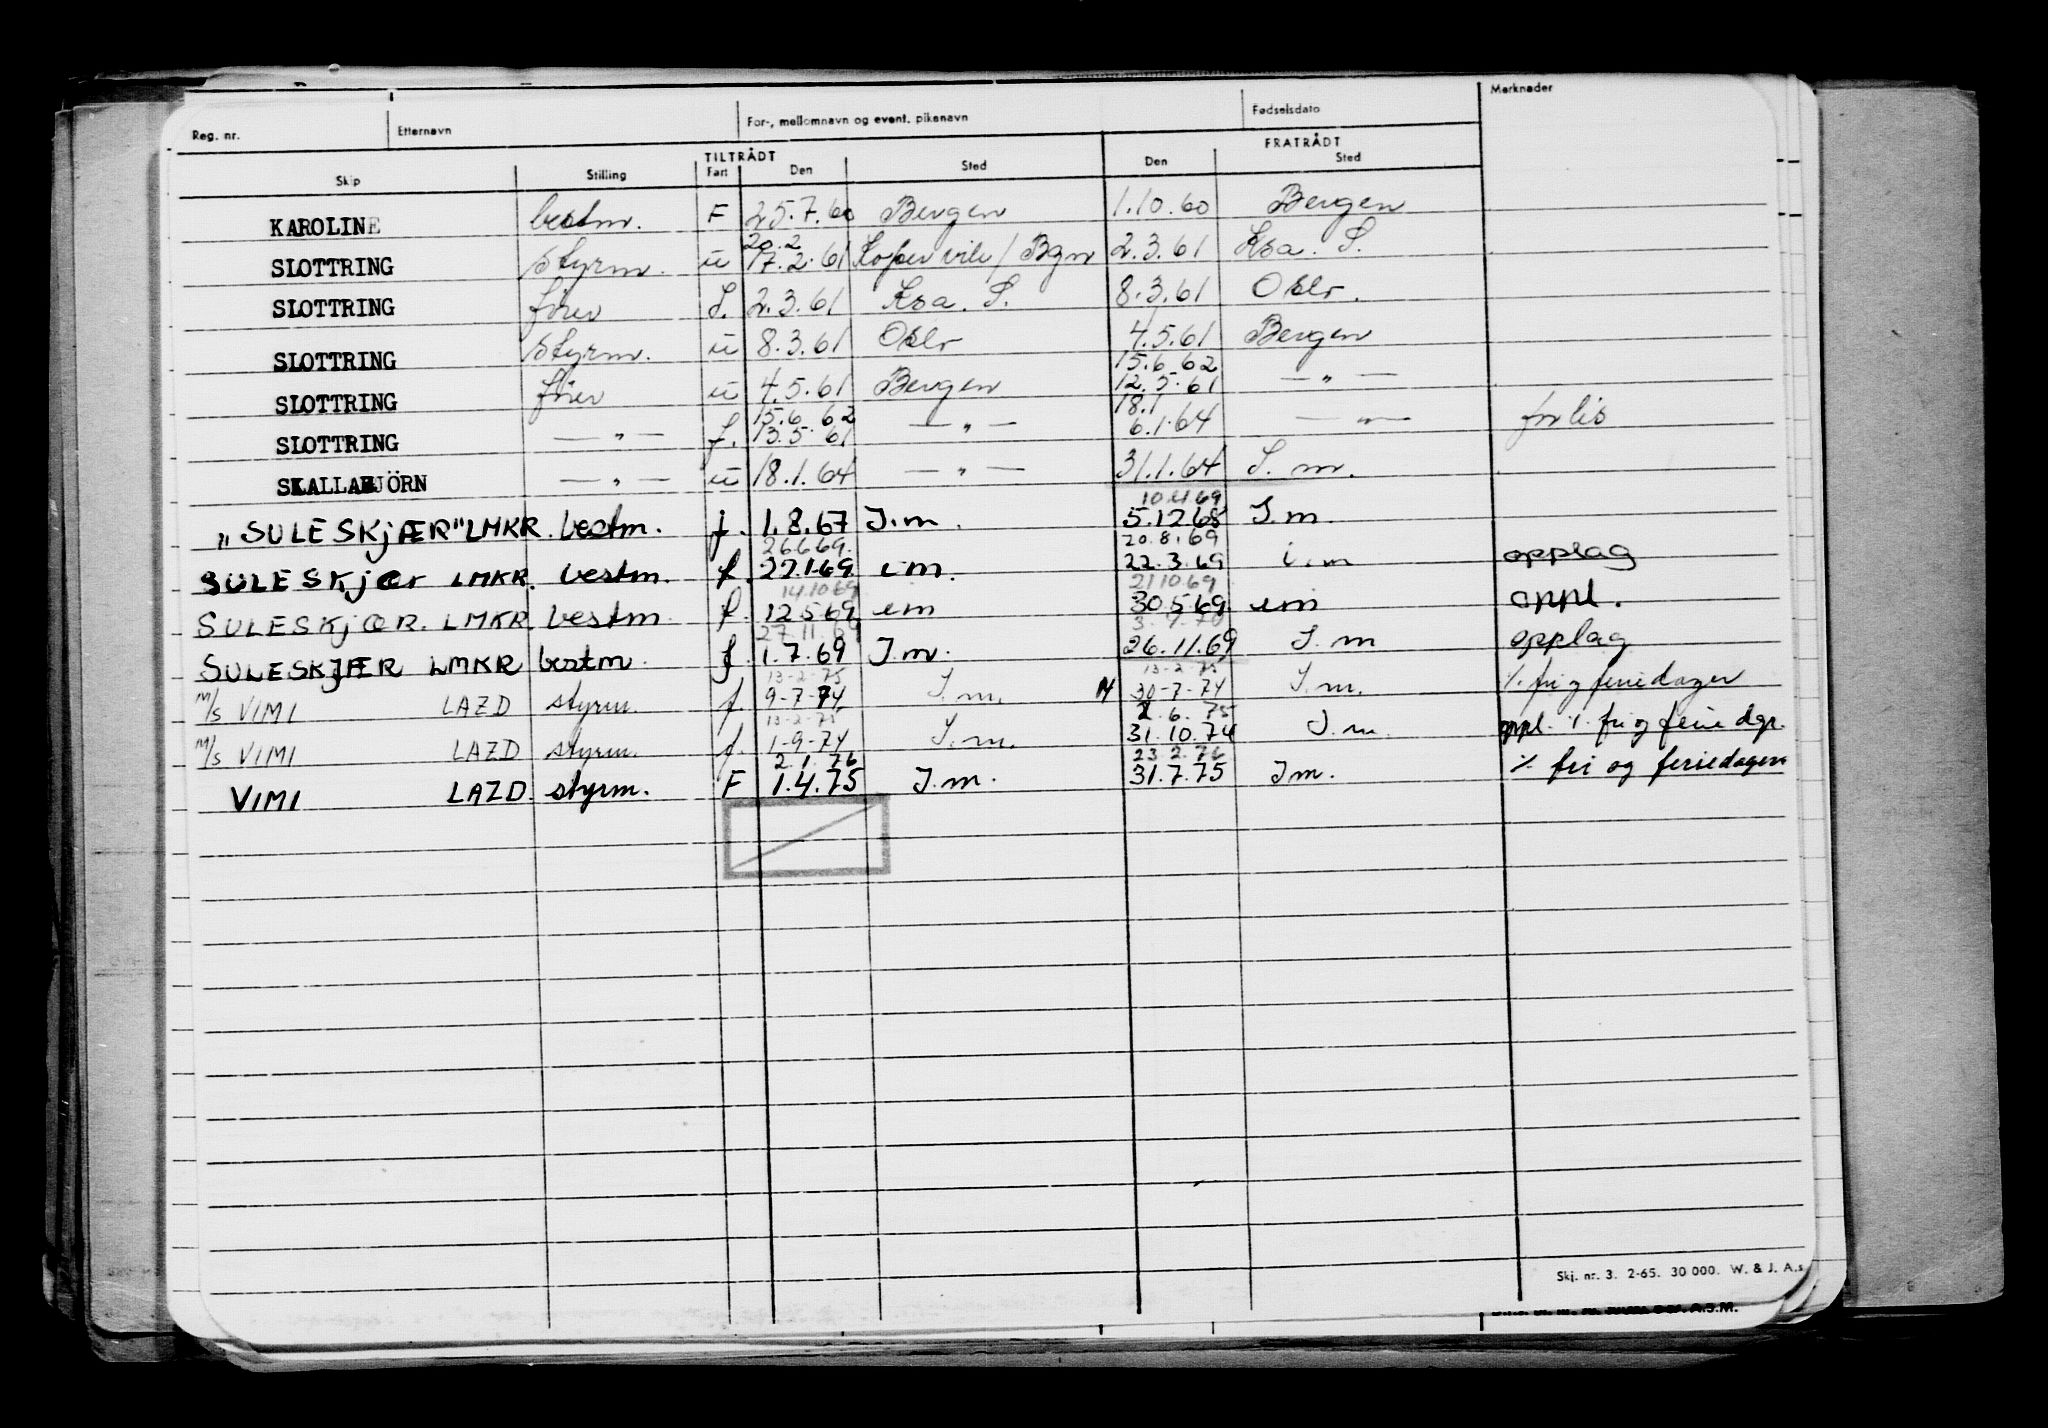 Reg. nr. Etternavn For-, mellomnavn og event. pikenavn Fødselsdato Merknader
TILTRÅDT FRATRÅDT
Skip Stilling Fart Den Sted Den Sted
KAROLINE bestm. F 25.7.60 Bergen 1.10.60 Bergen
20.2
SLOTTRING Styrm. u 17.2.61 Kopervik / Bgn 2.3.61 Ksa. S.
SLOTTRING fører S. 2.3.61 Ksa. S. 8.3.61 Oslo.
SLOTTRING Styrm. u 8.3.61 Oslo 4.5.61 Bergen
15.6.62
SLOTTRING fører u 4.5.61 Bergen 12.5.61 — " —
15.6.62 18.1
SLOTTRING — " — f. 13.5 61 — " — 6.1.64 — " — forlis
SKALLABJÖRN — " — u 18.1.64 — " — 31.1.64 S. m.
10.4.69
"SULESKJÆR" LMKR. bestm. f. 1.8.67 I.m. 5.12 68 I.m.
26.6.69. 20.8.69
SULESKJær LMKR. bestm. f. 22.1.69 i.m. 22.3.69 i.m opplag
14.10.69 21.10.69
SULESKJÆR. LMKR bestm. f. 12.5.69 im 30.5.69 im oppl.
27.11.69 3.7.70
SULESKJÆR LMKR bestm. f. 1.7.69 I.m. 26.11.69 I.m opplag
13-2-75 13-2-75
M/s VIMI LAZD styrm. f. 9-7-74 I.m. 30-7-74 I.m. ٪ fri og feriedager
13-2-75 2.6.75
M/s VIMI LAZD styrm. f. 1-9-74 I.m. 31.10.74 I.m. oppl. ٪ fri og ferie dgr.
2.1.76 23.2.76
VIMI LAZD. styrm. F 1.4.75 I.m. 31.7.75 I.m. ٪ fri og feriedager
Skj. nr. 3. 2-65. 30 000. W. & J. A.s
A.S.M.